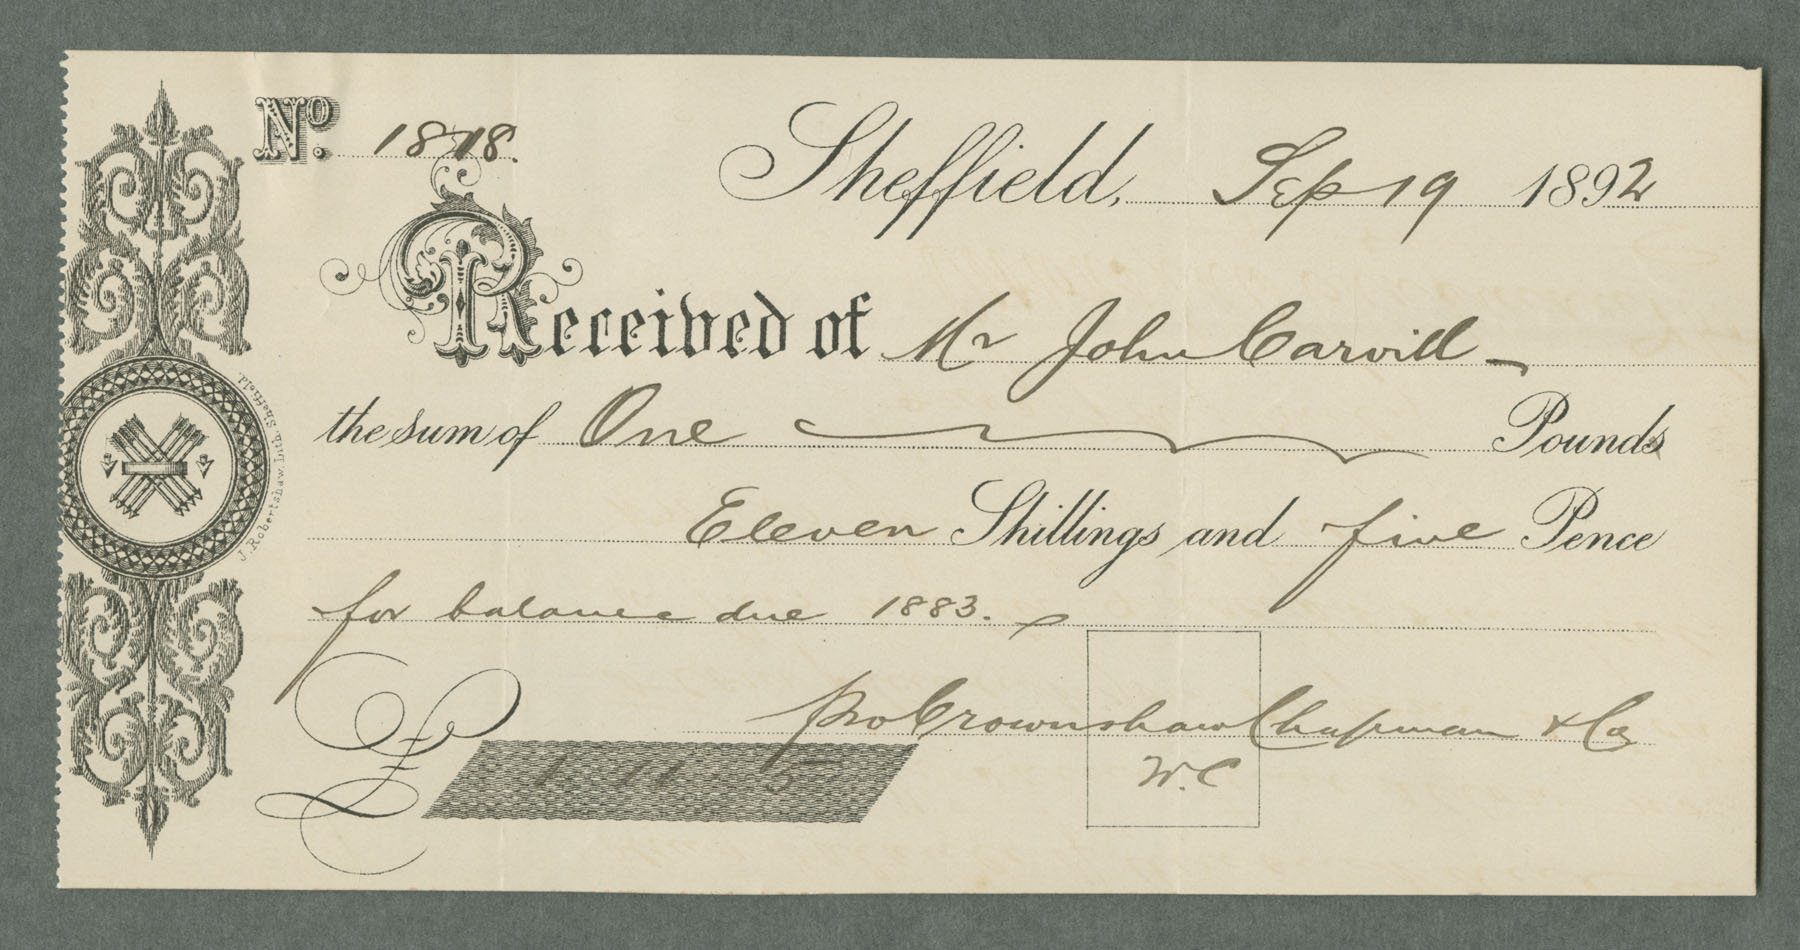 No. 1818.
Sheffield, Sep 19 1892
Received of Mr John Carvill
the sum of One Pounds
Eleven Shillings and five Pence
for balance due 1883.
pro Crownshaw Chapman & Co
£ 1. 11. 5
W.C
J. Robertshaw. Lith. Sheffield.